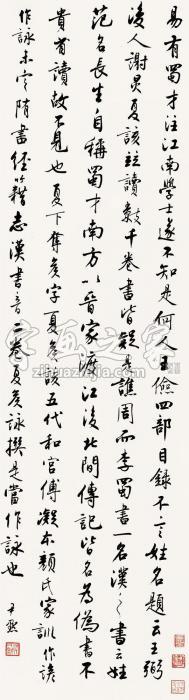 易有蜀才注江南學士遂不知是何人王儉四部目錄不言姓名題云王弼
後人謝炅夏該並讀數千卷書皆疑是譙周而李蜀書一名漢之書云姓
范名長生自稱蜀才南方以晉家渡江後北間傳記皆名為偽書不
貴省讀故不見也夏下奪侯字夏侯該五代和宮傅凝本顏氏家訓作諺
作詠未定隋書經籍志漢書音二卷夏侯詠撰是當作詠也
尹默